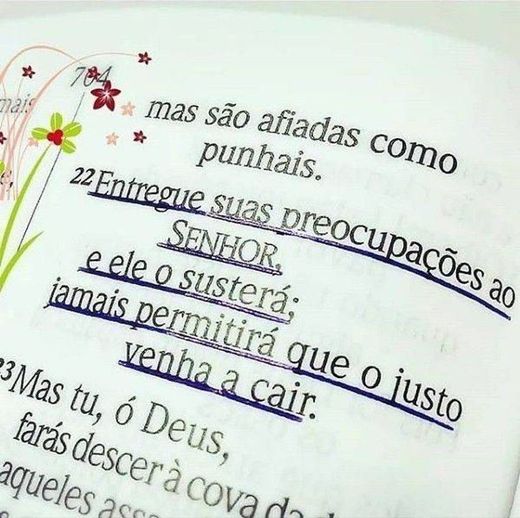 704
mais
mas são afiadas como
punhais.
22 Entregue suas preocupações ao
SENHOR,
e ele o susterá;
jamais permitirá que o justo
venha a cair.
23 Mas tu, ó Deus,
farás descer à cova da
aqueles